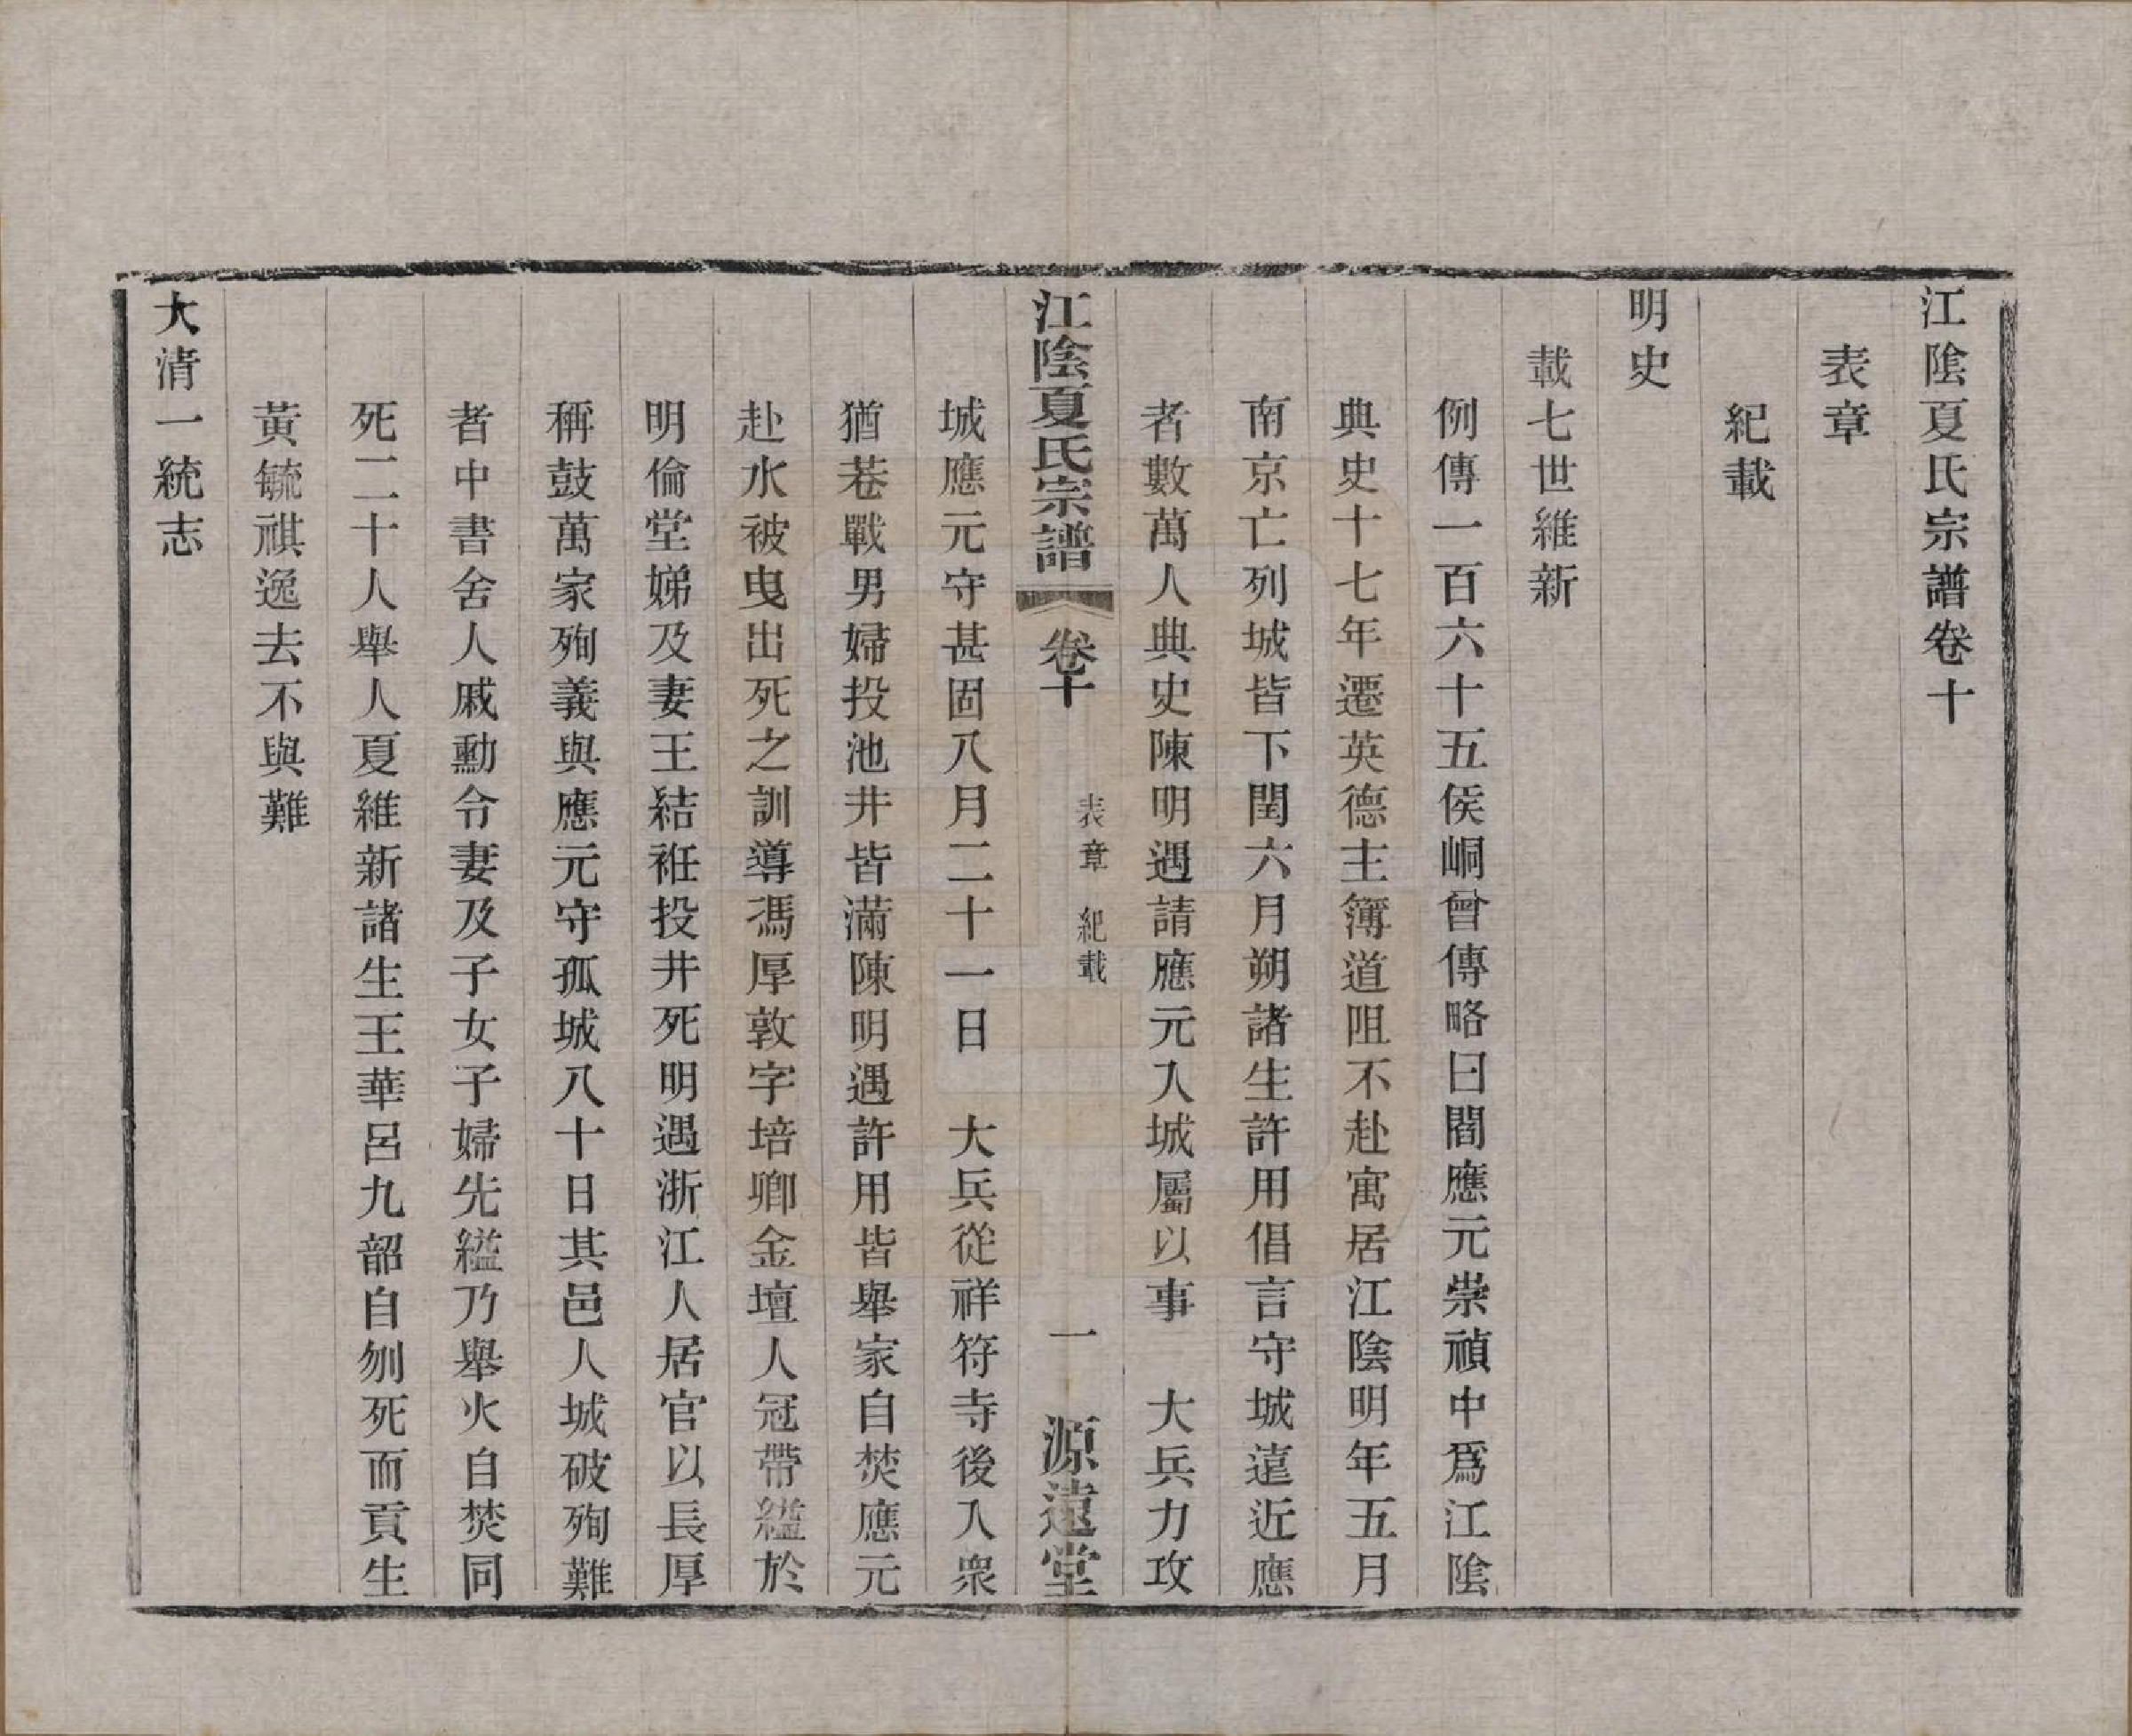 江陰夏氏宗譜卷十
表章
紀載
明史
載七世維新
例傳一百六十五侯峒曾傳略曰閻應元崇禎中爲江陰
典史十七年遷英德主簿道阻不赴寓居江陰明年五月
南京亡列城皆下閏六月朔諸生許用倡言守城遠近應
者數萬人典史陳明遇請應元入城屬以事　大兵力攻
江陰夏氏宗譜　卷十　表章　紀載　一　源遠堂
城應元守甚固八月二十一日　大兵從祥符寺後入衆
猶巷戰男婦投池井皆滿陳明遇許用皆舉家自焚應元
赴水被曳出死之訓導馮厚敦字培卿金壇人冠帶縊於
明倫堂娣及妻王結袵投井死明遇浙江人居官以長厚
稱鼓萬家殉義與應元守孤城八十日其邑人城破殉難
者中書舍人戚勳令妻及子女子婦先縊乃舉火自焚同
死二十人舉人夏維新諸生王華呂九韶自刎死而貢生
黃毓祺逸去不與難
大清一統志